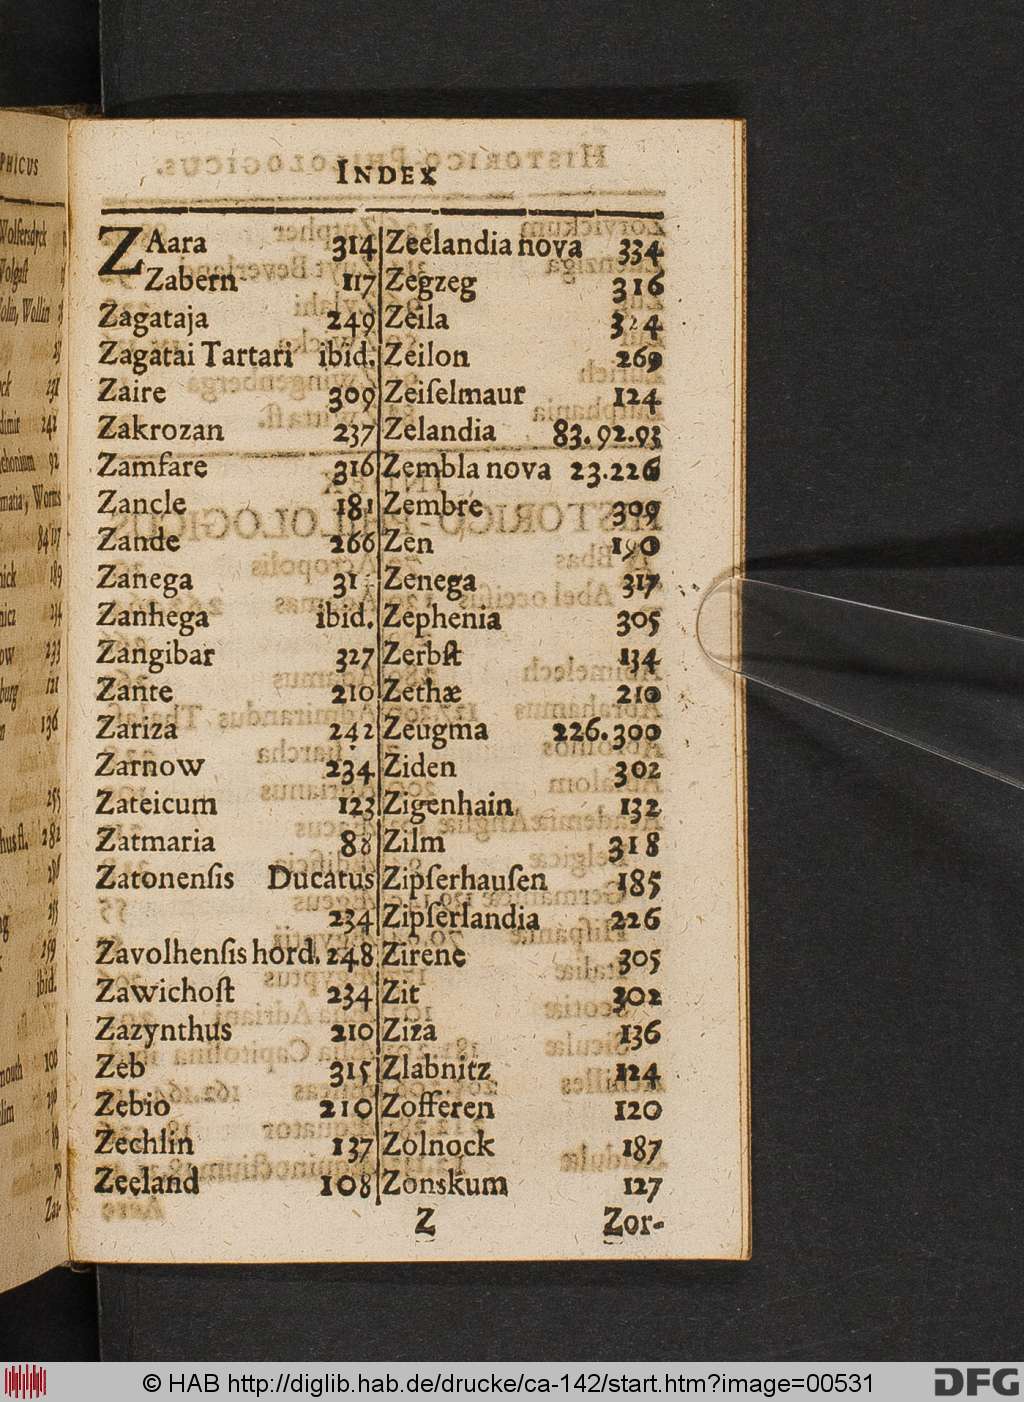 PHICUS
Wolfersdyck
Wolgast
Wolin, Wollin
INDEX
ZAara 314
Zabern 117
Zagataja 249
Zagatai Tartari ibid.
Zaire 309
Zakrozan 237
Zamfare 316
Zancle 181
Zande 266
Zanega
Zanhega ibid.
Zangibar 327
Zante 210
Zariza 242
Zarnow 234
Zateicum 123
Zatmaria 88
Zatonenſis Ducatus
234
Zavolhenſis hord. 248
Zawichoſt 234
Zazynthus 210
Zeb 315
Zebio 210
Zechlin 137
Zeeland 108
Zeelandia nova 334
Zegzeg 316
Zeila 324
Zeilon 269
Zeiſelmaur 124
Zelandia 83.92.93
Zembla nova 23.226
Zembre 309
Zen 190
Zenega 317
Zephenia 305
Zerbſt 134
Zethæ 210
Zeugma 226.300
Ziden 302
Zigenhain 132
Zilm 318
Zipſerhauſen 185
Zipſerlandia 226
Zirene 305
Zit 302
Ziza 136
Zlabnitz 124
Zofferen 120
Zolnock 187
Zonskum 127
Z Zor-
© HAB http://diglib.hab.de/drucke/ca-142/start.htm?image=00531
DFG